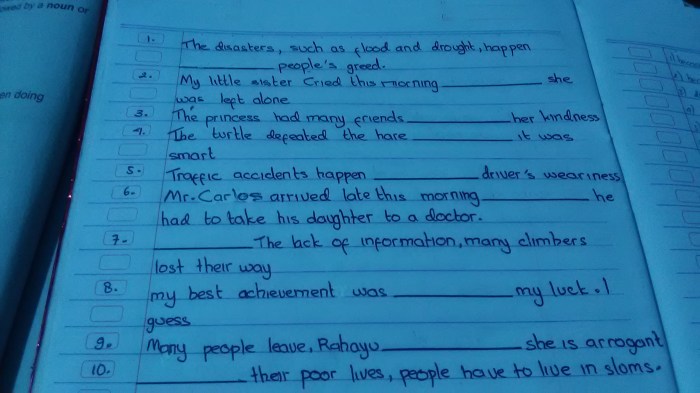 owed by a noun or
en doing
1. The disasters, such as flood and drought, happen
__________ people's greed.
2. My little sister Cried this morning __________ she
was left alone
3. The princess had many friends __________ her kindness
4. The turtle defeated the hare __________ it was
smart
5. Traffic accidents happen __________ driver's weariness
6. Mr. Carlos arrived late this morning __________ he
had to take his daughter to a doctor.
7. __________ The lack of information, many climbers
lost their way
8. my best achievement was __________ my luck. I
guess
9. Many people leave, Rahayu __________ she is arrogant
10. __________ their poor lives, people have to live in sloms.